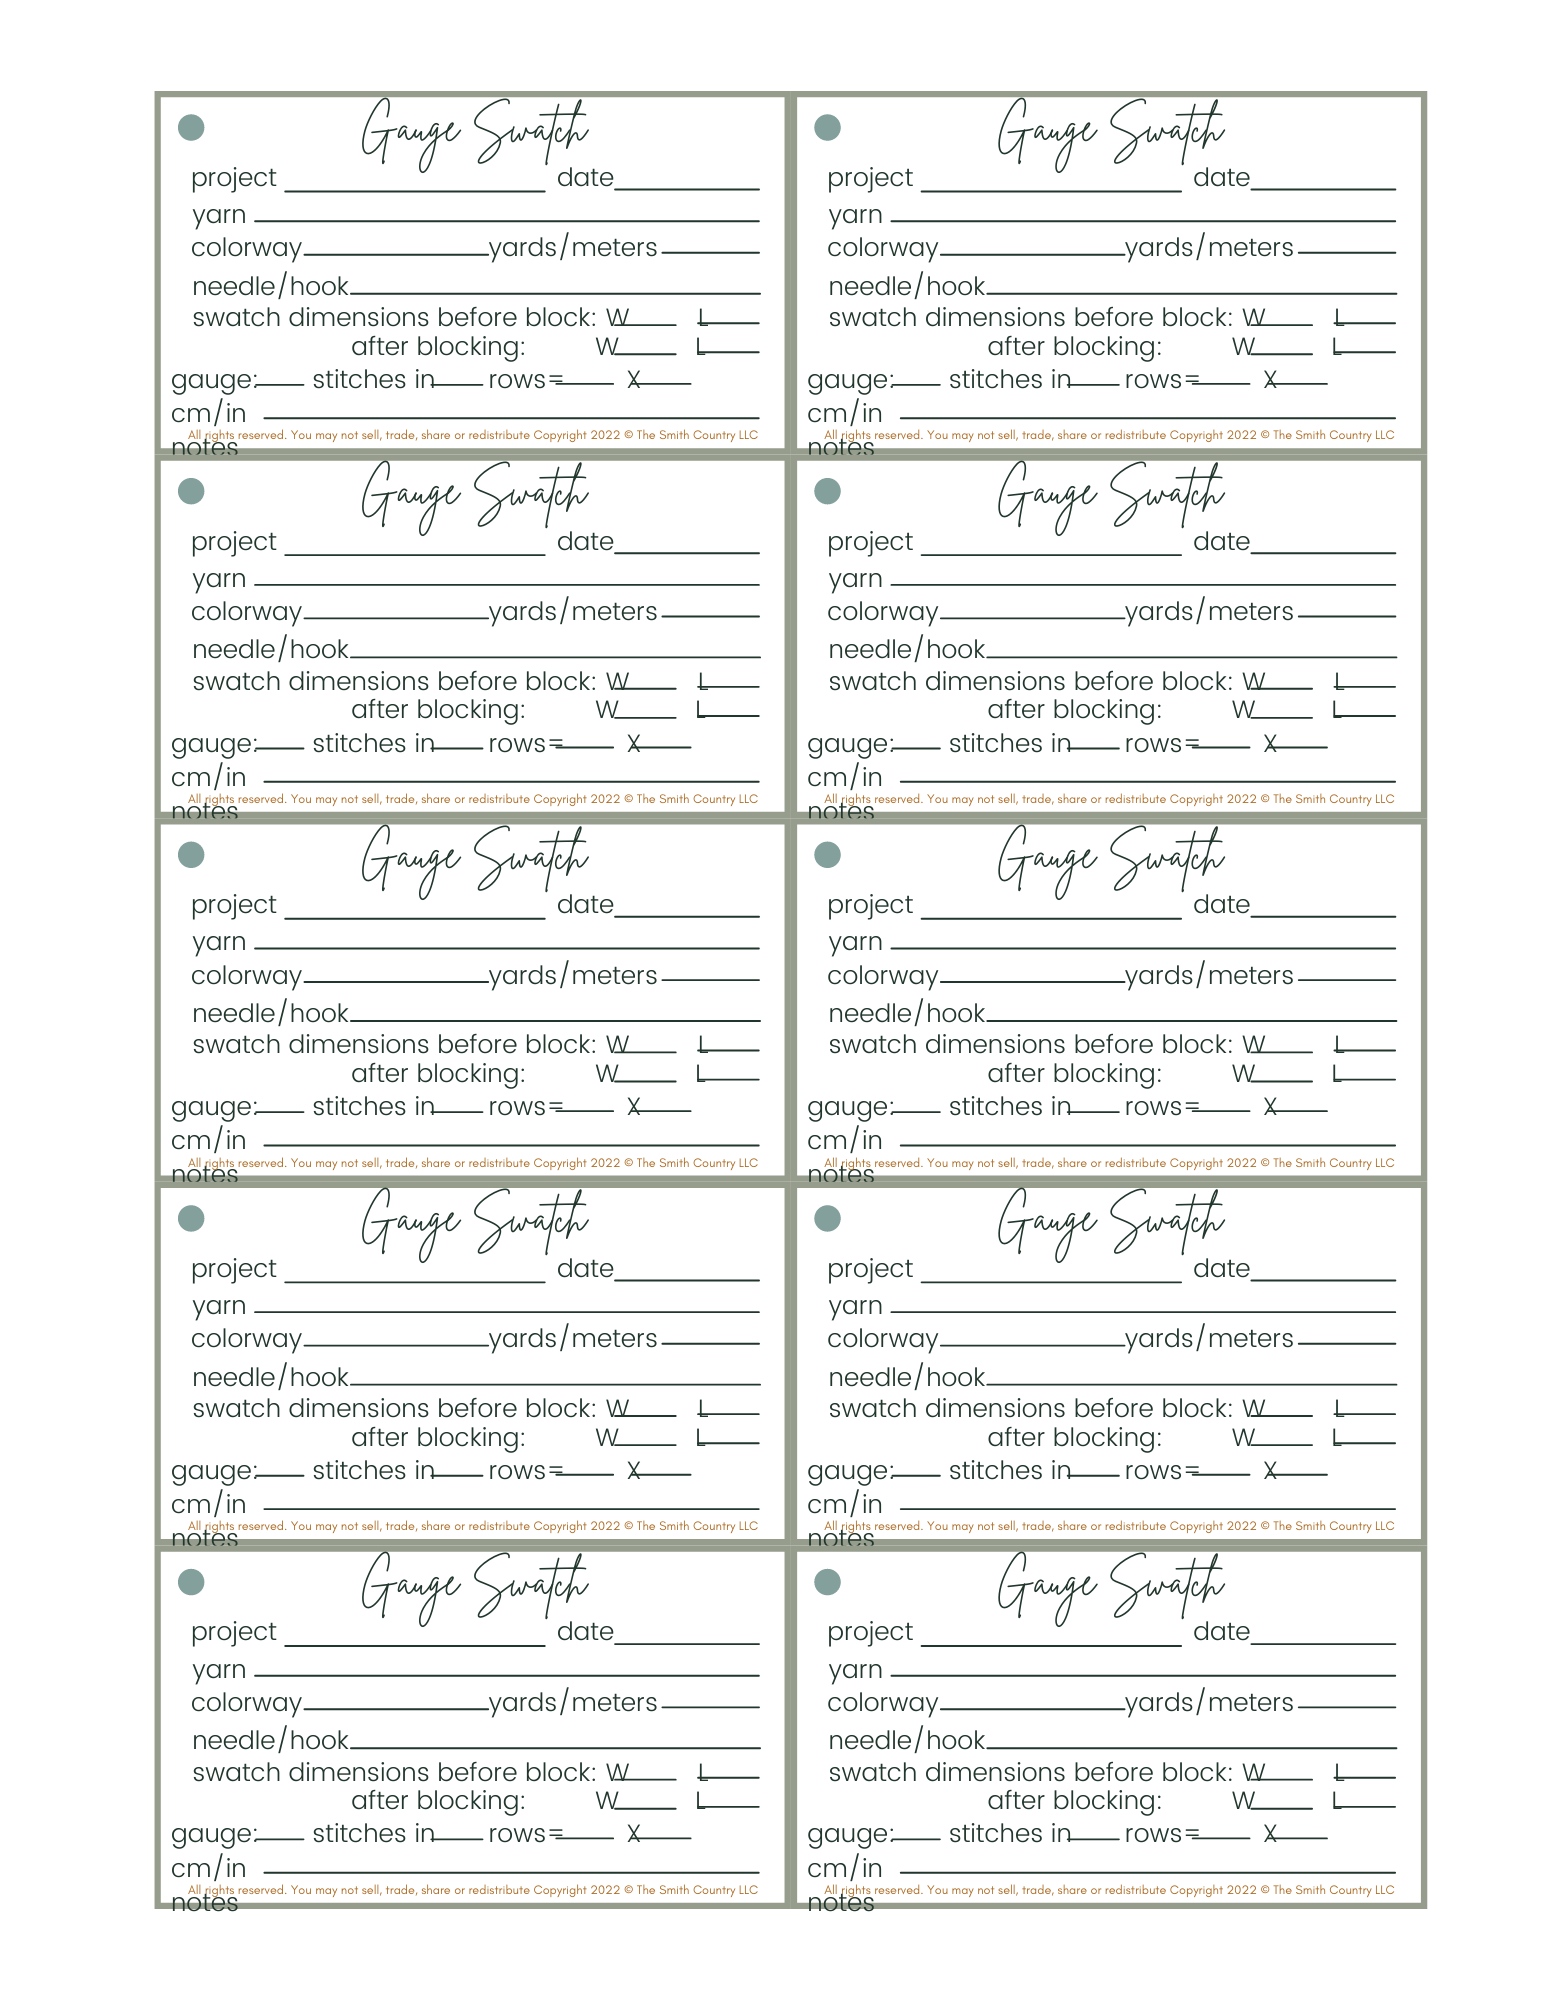 Gauge Swatch
project ____ date____
yarn ____
colorway____yards/meters ____
needle/hook____
swatch dimensions before block: W____ L____
after blocking: W____ L____
gauge:____ stitches in____ rows=____ X____
cm/in ____
All rights reserved. You may not sell, trade, share or redistribute Copyright 2022 © The Smith Country LLC
notes
Gauge Swatch
project ____ date____
yarn ____
colorway____yards/meters ____
needle/hook____
swatch dimensions before block: W____ L____
after blocking: W____ L____
gauge:____ stitches in____ rows=____ X____
cm/in ____
All rights reserved. You may not sell, trade, share or redistribute Copyright 2022 © The Smith Country LLC
notes
Gauge Swatch
project ____ date____
yarn ____
colorway____yards/meters ____
needle/hook____
swatch dimensions before block: W____ L____
after blocking: W____ L____
gauge:____ stitches in____ rows=____ X____
cm/in ____
All rights reserved. You may not sell, trade, share or redistribute Copyright 2022 © The Smith Country LLC
notes
Gauge Swatch
project ____ date____
yarn ____
colorway____yards/meters ____
needle/hook____
swatch dimensions before block: W____ L____
after blocking: W____ L____
gauge:____ stitches in____ rows=____ X____
cm/in ____
All rights reserved. You may not sell, trade, share or redistribute Copyright 2022 © The Smith Country LLC
notes
Gauge Swatch
project ____ date____
yarn ____
colorway____yards/meters ____
needle/hook____
swatch dimensions before block: W____ L____
after blocking: W____ L____
gauge:____ stitches in____ rows=____ X____
cm/in ____
All rights reserved. You may not sell, trade, share or redistribute Copyright 2022 © The Smith Country LLC
notes
Gauge Swatch
project ____ date____
yarn ____
colorway____yards/meters ____
needle/hook____
swatch dimensions before block: W____ L____
after blocking: W____ L____
gauge:____ stitches in____ rows=____ X____
cm/in ____
All rights reserved. You may not sell, trade, share or redistribute Copyright 2022 © The Smith Country LLC
notes
Gauge Swatch
project ____ date____
yarn ____
colorway____yards/meters ____
needle/hook____
swatch dimensions before block: W____ L____
after blocking: W____ L____
gauge:____ stitches in____ rows=____ X____
cm/in ____
All rights reserved. You may not sell, trade, share or redistribute Copyright 2022 © The Smith Country LLC
notes
Gauge Swatch
project ____ date____
yarn ____
colorway____yards/meters ____
needle/hook____
swatch dimensions before block: W____ L____
after blocking: W____ L____
gauge:____ stitches in____ rows=____ X____
cm/in ____
All rights reserved. You may not sell, trade, share or redistribute Copyright 2022 © The Smith Country LLC
notes
Gauge Swatch
project ____ date____
yarn ____
colorway____yards/meters ____
needle/hook____
swatch dimensions before block: W____ L____
after blocking: W____ L____
gauge:____ stitches in____ rows=____ X____
cm/in ____
All rights reserved. You may not sell, trade, share or redistribute Copyright 2022 © The Smith Country LLC
notes
Gauge Swatch
project ____ date____
yarn ____
colorway____yards/meters ____
needle/hook____
swatch dimensions before block: W____ L____
after blocking: W____ L____
gauge:____ stitches in____ rows=____ X____
cm/in ____
All rights reserved. You may not sell, trade, share or redistribute Copyright 2022 © The Smith Country LLC
notes